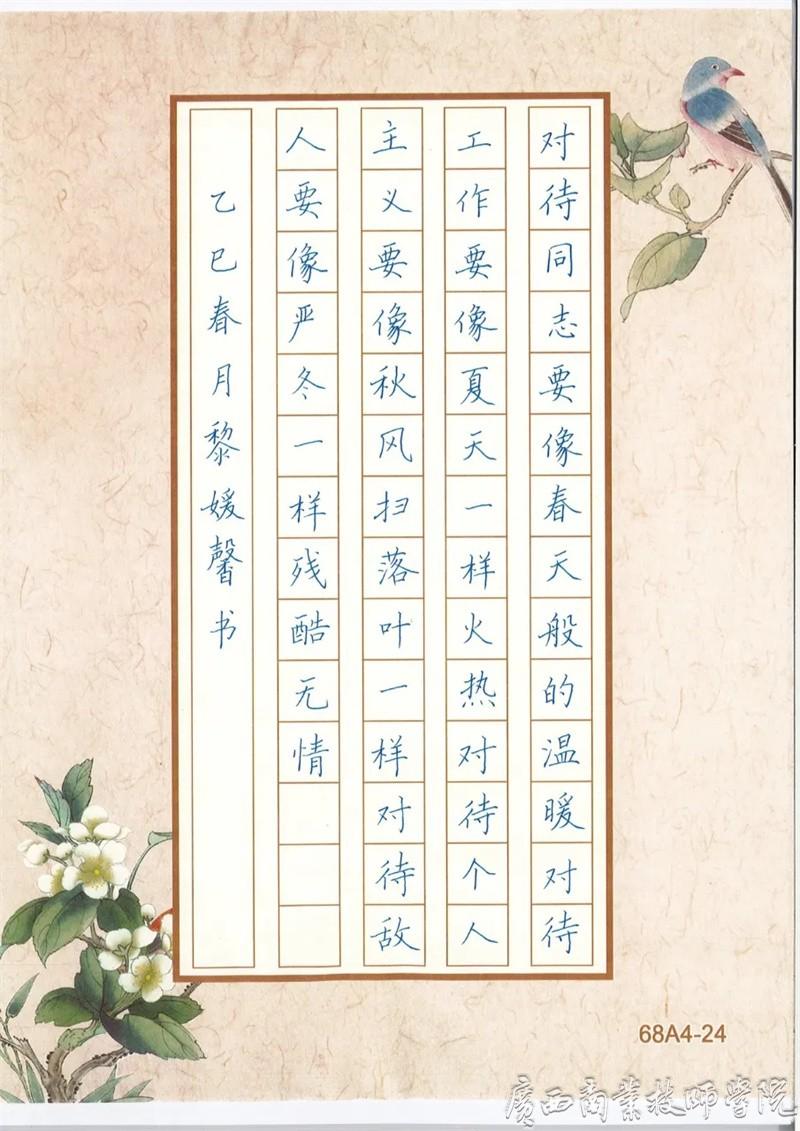 对待同志要像春天般的温暖对待
工作要像夏天一样火热对待个人
主义要像秋风扫落叶一样对待敌
人要像严冬一样残酷无情
乙巳春月黎媛馨书
68A4-24
廣西商業技師學院